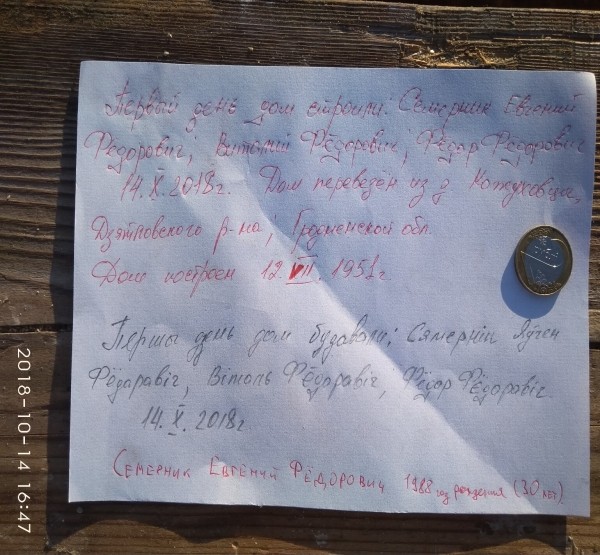 Первый день дом строили: Семерник Евгений
Фёдорович, Виталий Фёдорович, Фёдор Фёдорович
14.X.2018г. Дом перевезён из д. Кожуховцы,
Дзятловского р-на, Гродненской обл.
Дом построен 12.VII.1951г.
Першы дзень дом будавалі: Сямернік Яўген
Фёдаравіч, Віталь Фёдаравіч, Фёдар Фёдаравіч
14.X.2018г
Семерник Евгений Фёдорович 1988 год рождения (30 лет)
2018-10-14 16:47